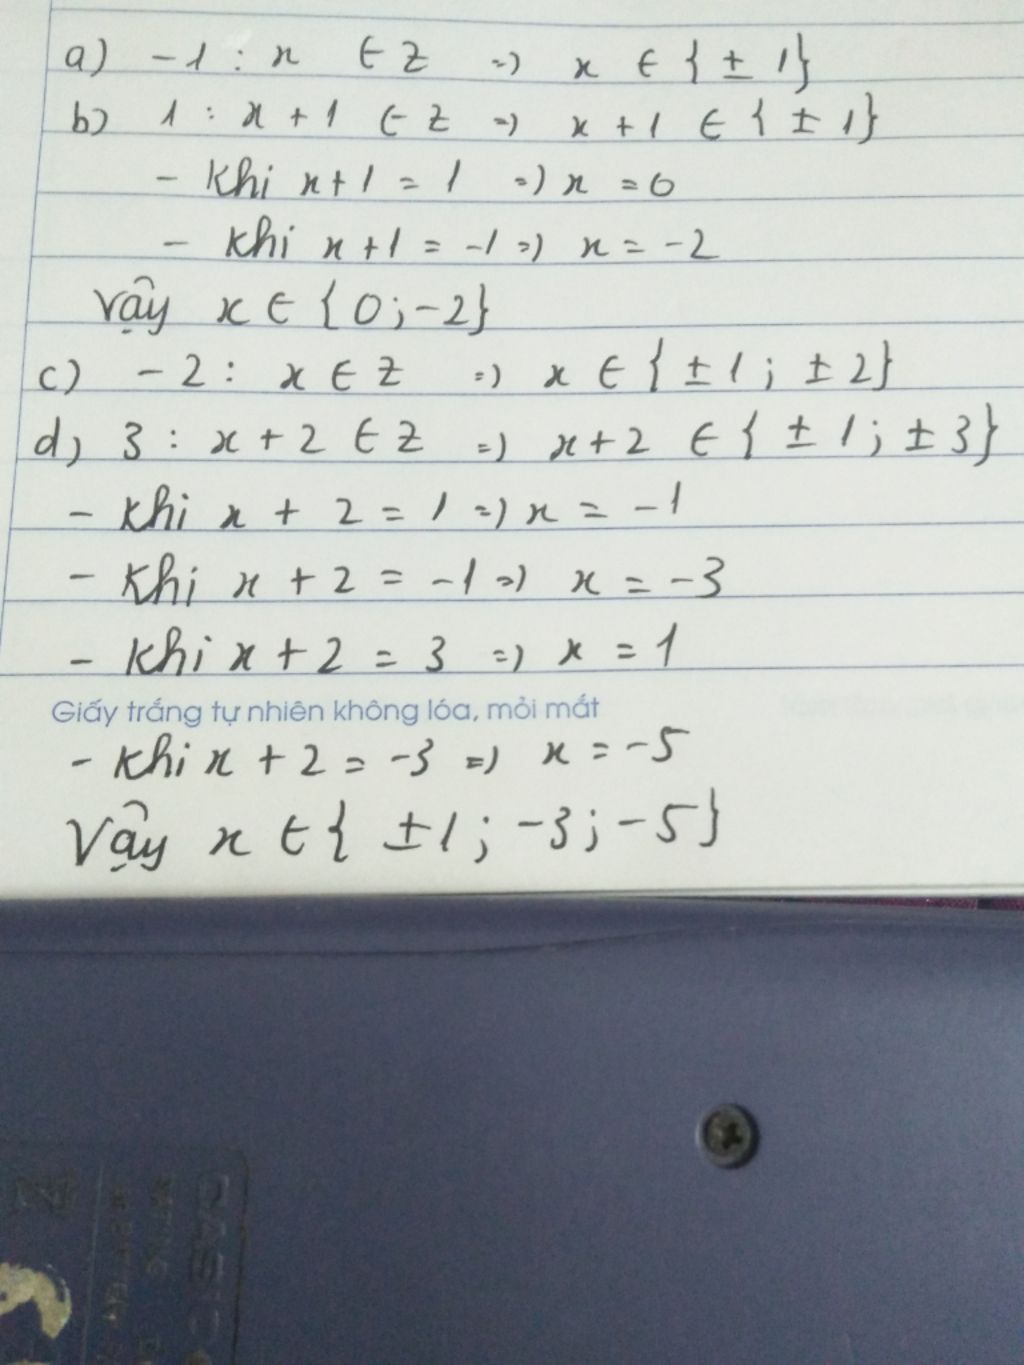 a) -1 : x ∈ Z => x ∈ { ± 1}
b) 1 : x + 1 ∈ Z => x + 1 ∈ { ± 1}
- Khi x+1 = 1 => x = 0
- Khi x+1 = -1 => x = -2
Vậy x ∈ { 0 ; -2}
c) - 2 : x ∈ Z => x ∈ { ± 1 ; ± 2}
d) 3 : x + 2 ∈ Z => x + 2 ∈ { ± 1 ; ± 3}
- Khi x + 2 = 1 => x = -1
- Khi x + 2 = -1 => x = -3
- Khi x + 2 = 3 => x = 1
Giấy trắng tự nhiên không lóa, mỏi mắt
- Khi x + 2 = -3 => x = -5
Vậy x ∈ { ±1 ; -3 ; -5}
CASIO